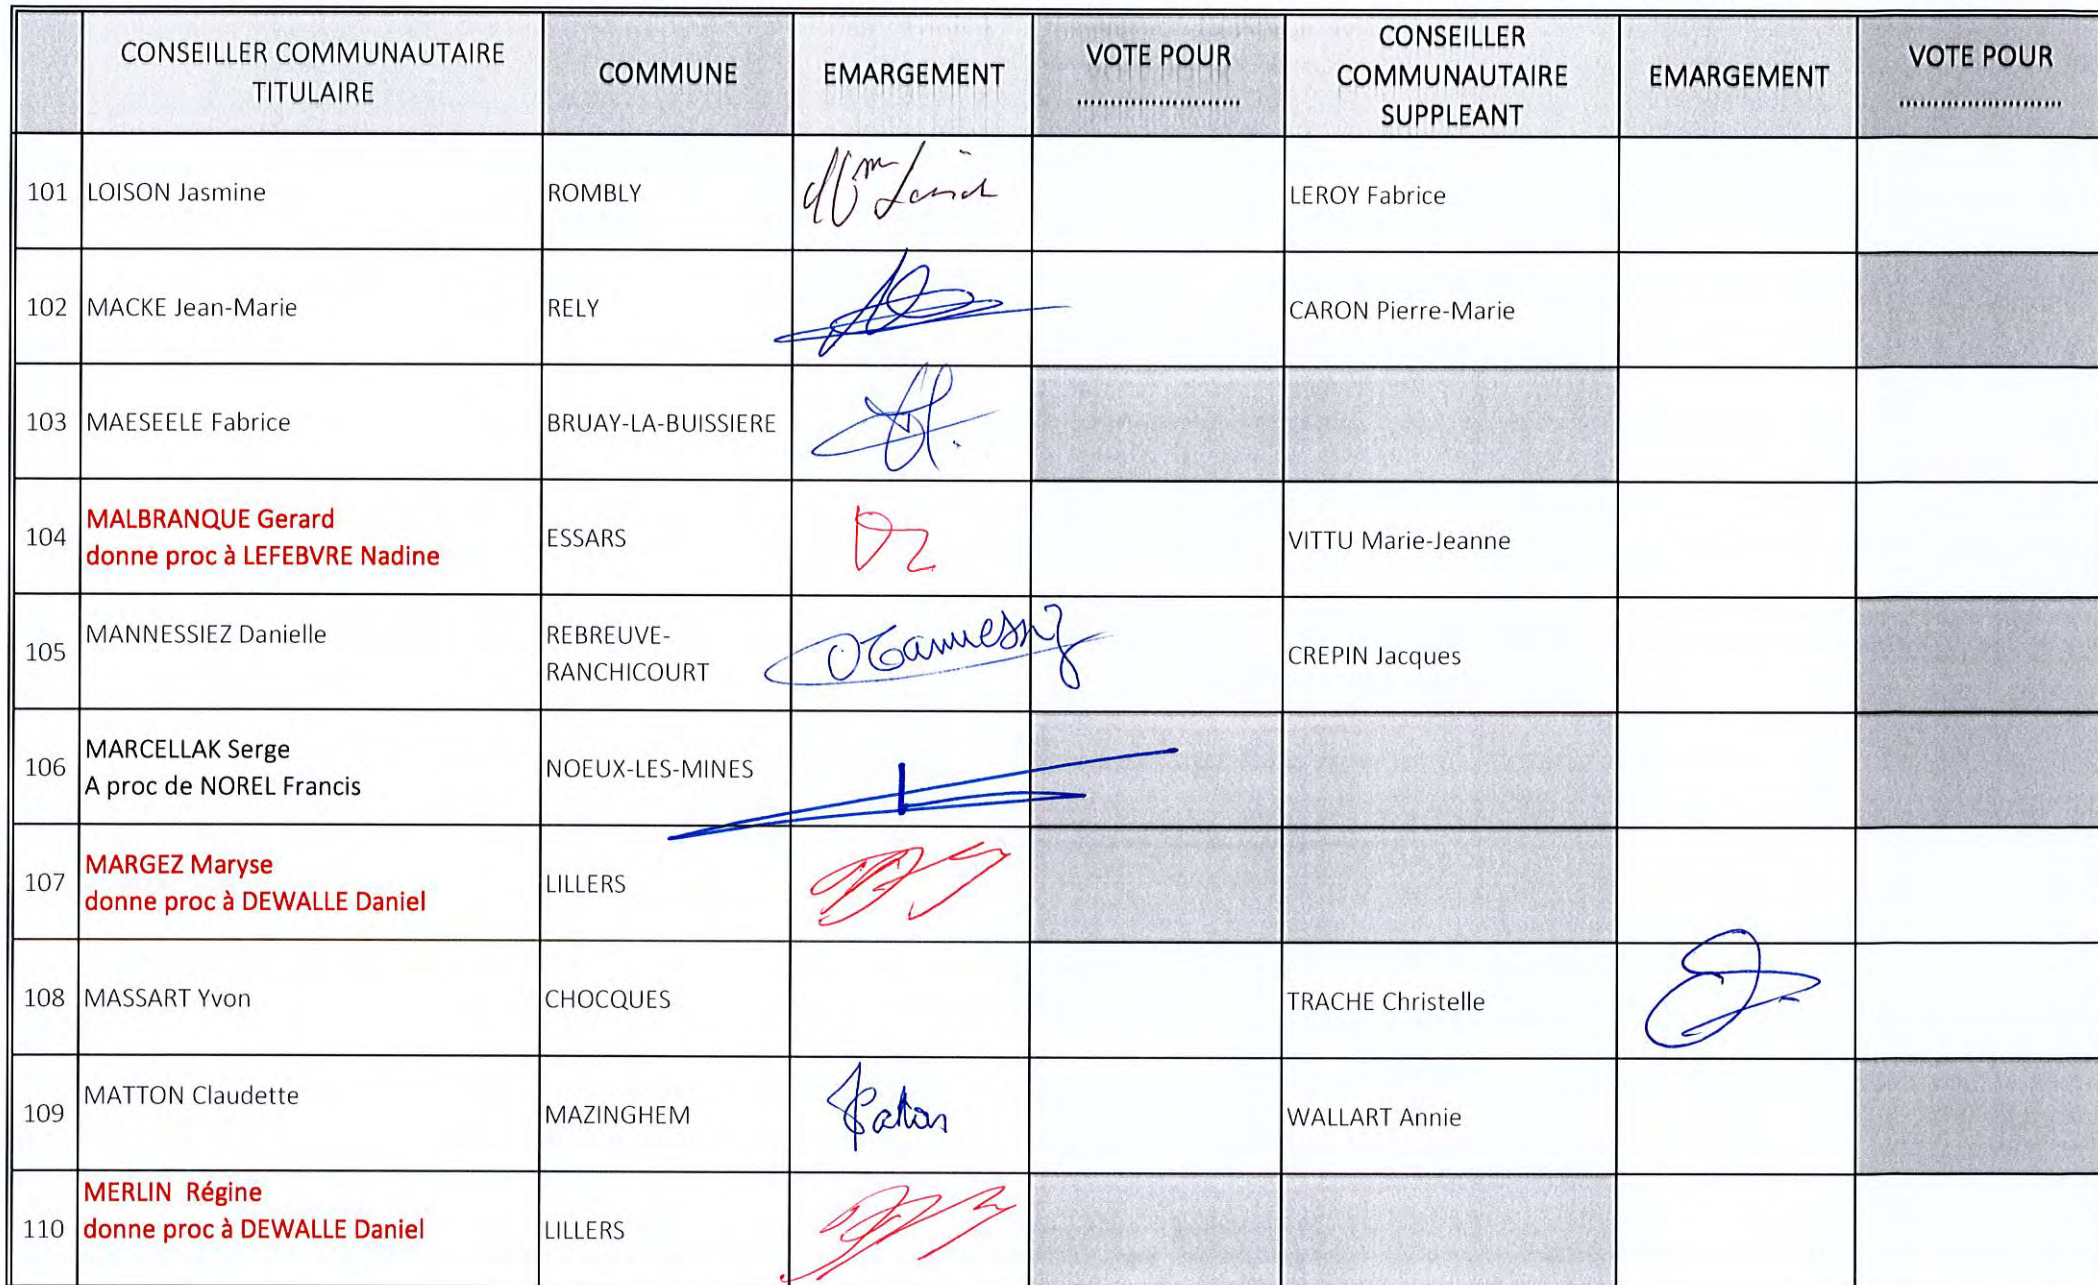 CONSEILLER COMMUNAUTAIRE
TITULAIRE
COMMUNE
EMARGEMENT
VOTE POUR
........................
CONSEILLER
COMMUNAUTAIRE
SUPPLEANT
EMARGEMENT
VOTE POUR
........................
101 LOISON Jasmine ROMBLY LEROY Fabrice
102 MACKE Jean-Marie RELY CARON Pierre-Marie
103 MAESEELE Fabrice BRUAY-LA-BUISSIERE
104 MALBRANQUE Gerard
donne proc à LEFEBVRE Nadine
ESSARS VITTU Marie-Jeanne
105 MANNESSIEZ Danielle
REBREUVE-
RANCHICOURT
CREPIN Jacques
106 MARCELLAK Serge
A proc de NOREL Francis
NOEUX-LES-MINES
107 MARGEZ Maryse
donne proc à DEWALLE Daniel
LILLERS
108 MASSART Yvon CHOCQUES TRACHE Christelle
109 MATTON Claudette MAZINGHEM WALLART Annie
110 MERLIN Régine
donne proc à DEWALLE Daniel
LILLERS